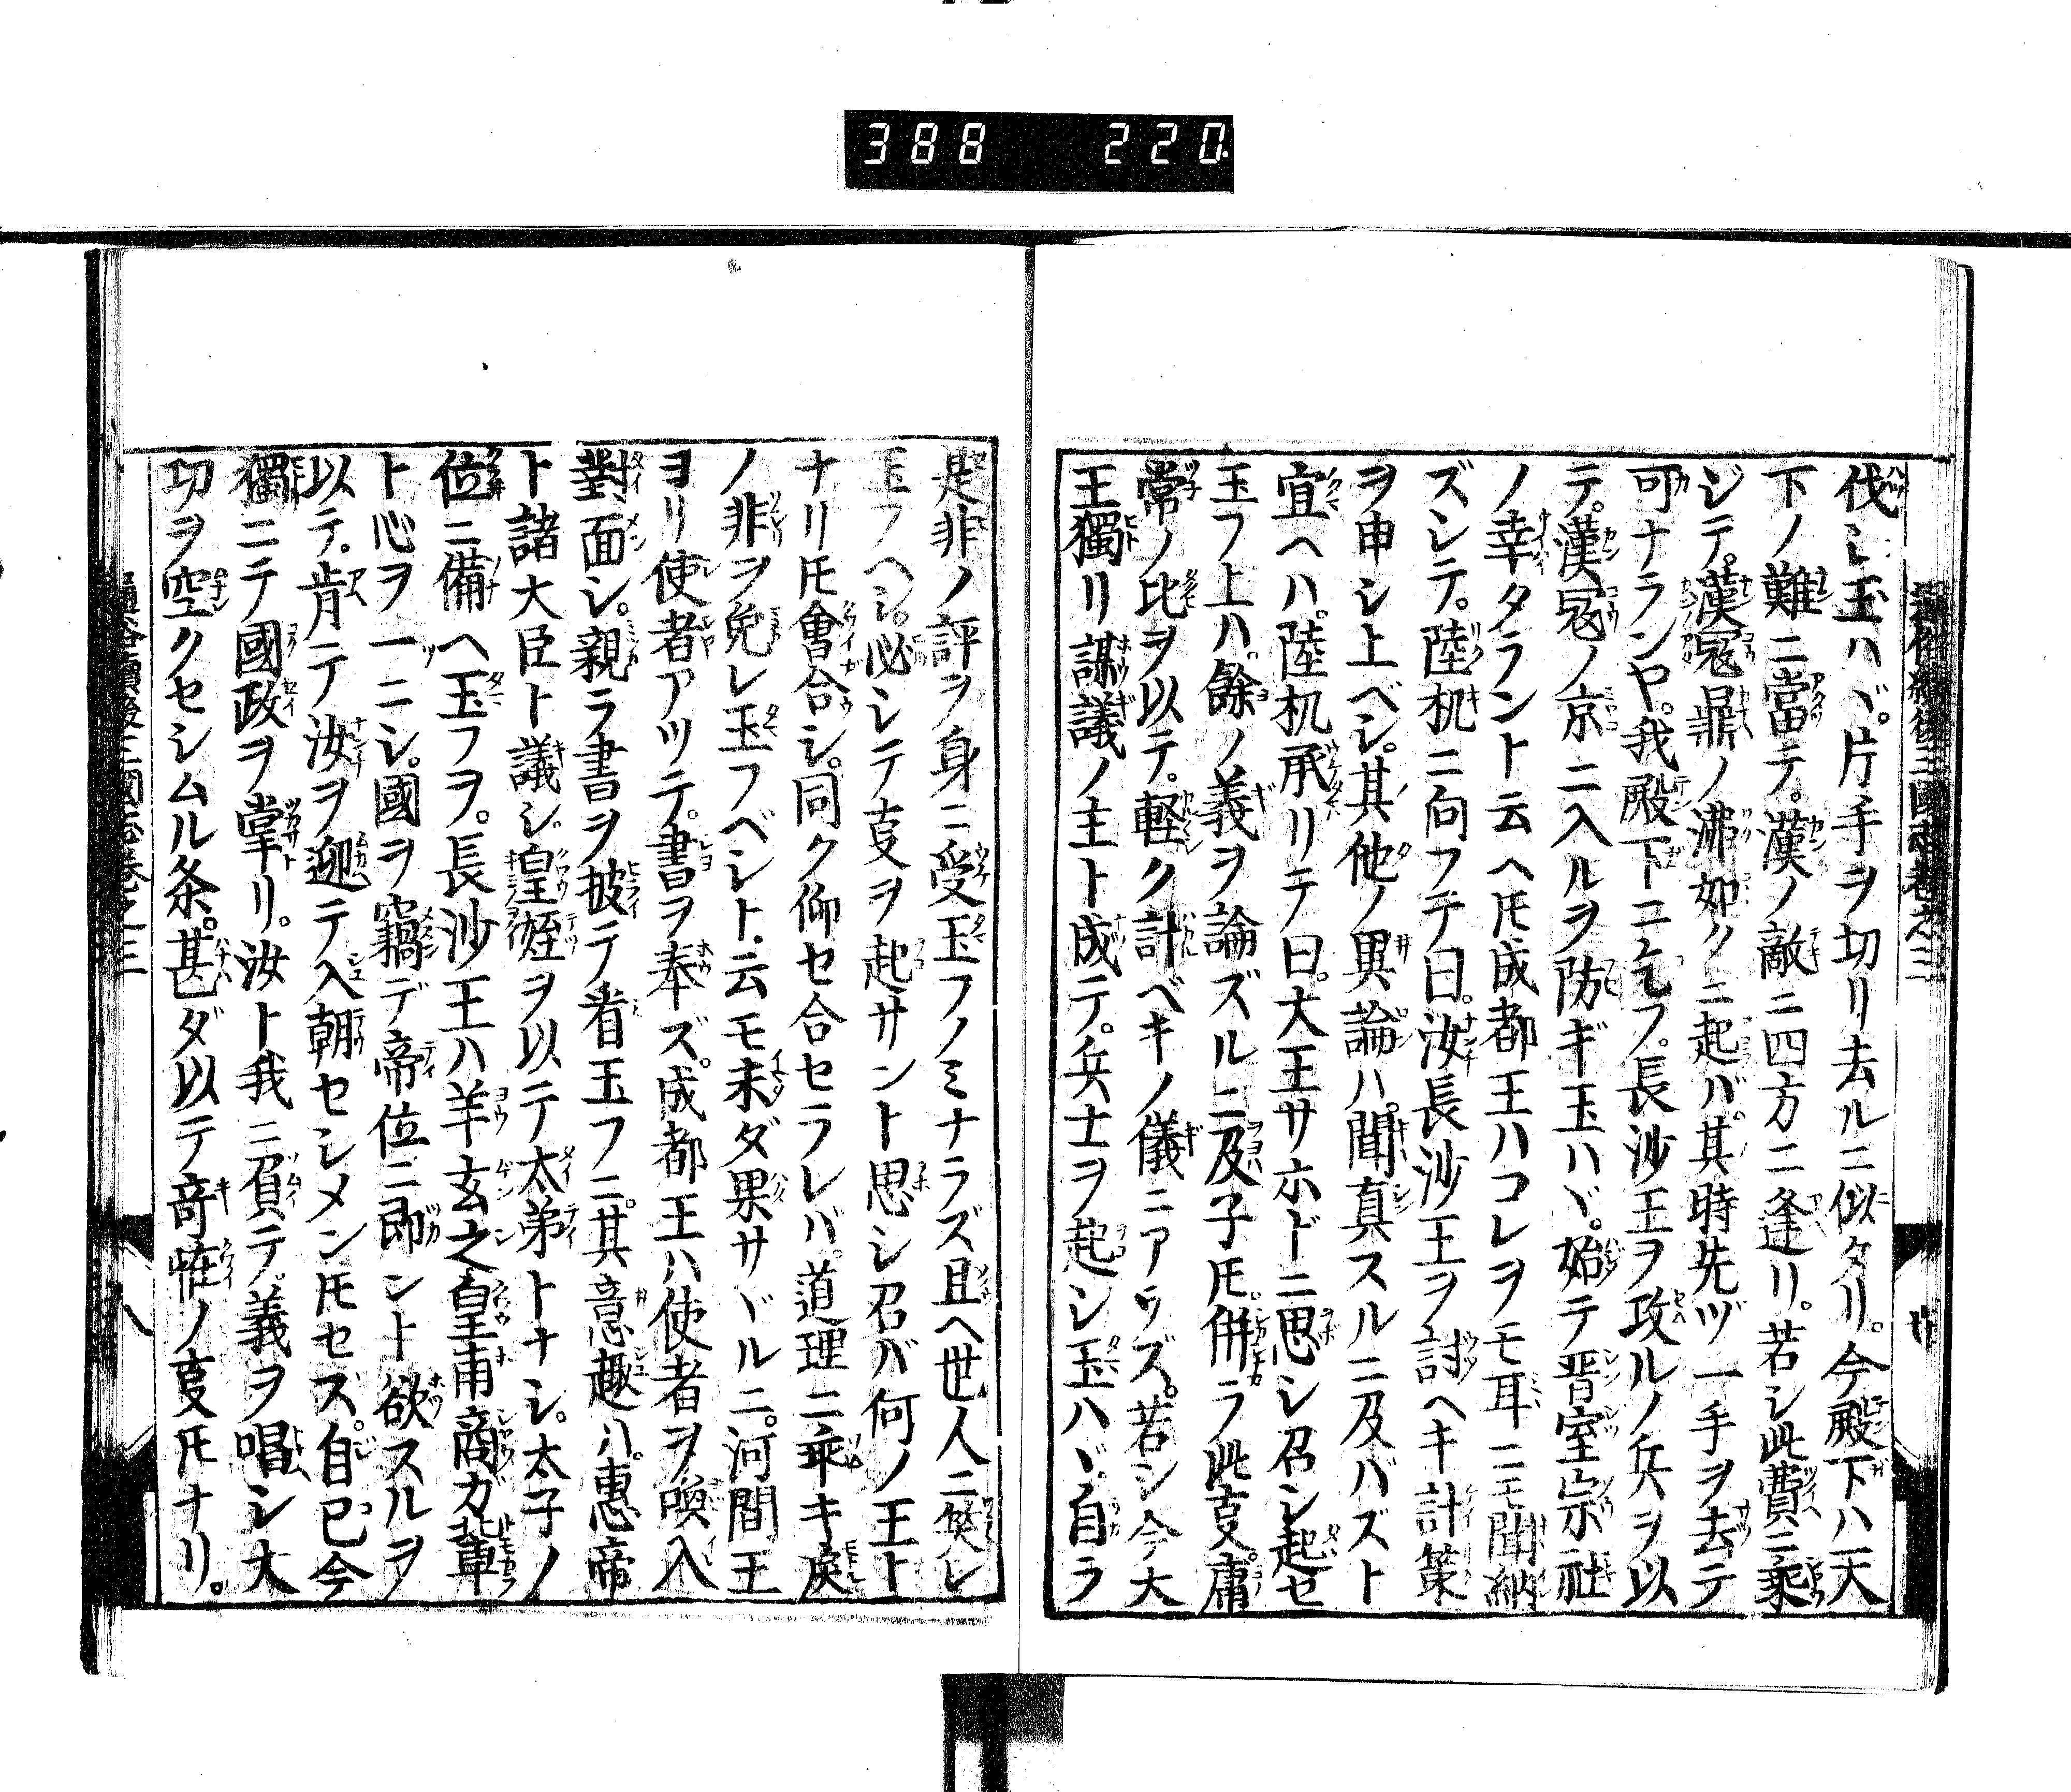 388 220
通俗續後三國志卷之三
伐シ玉ハヾ。片手ヲ切リ去ルニ似タリ。今殿下ハ天
下ノ難ニ當テ。漢ノ敵ニ四方ニ逢リ。若シ此費ニ乘
ジテ。漢冦鼎ノ沸如クニ起バ。其時先ヅ一手ヲ去テ
可ナランヤ。我殿下ニ乞フ。長沙王ヲ攻ルノ兵ヲ以
テ。漢冦ノ京ニ入ルヲ防ギ玉ハヾ。始テ晋室宗社
ノ幸タラント云ヘ𪜈成都王ハコレヲモ耳ニモ聞納
ズシテ。陸机ニ向フテ曰。汝長沙王ヲ討ヘキ計策
ヲ申シ上ベシ。其他ノ異論ハ。聞真スルニ及バズト
宜ヘハ。陸机承リテ曰。大王サホドニ思シ召シ起セ
玉フ上ハ。餘ノ義ヲ論ズルニ及子𪜈。併ラ此㕝。庸
常ノ比ヲ以テ。軽ク計ベキノ儀ニアラズ。若シ今大
王獨リ謀議ノ主ト成テ。兵士ヲ起シ玉ハヾ。自ラ
是非ノ評ヲ身ニ受玉フノミナラズ且ヘ世人ニ笑レ
玉フヘシ。必シテ㕝ヲ起サント思シ召バ何ノ王ト
ナリ𪜈會合シ。同ク仰セ合セラレバ。道理ニ乖キ戾
ノ非ヲ免レ玉フベシト云モ未ダ果サヾルニ。河間王
ヨリ使者アツテ。書ヲ奉ズ。成都王ハ使者ヲ喚入
對面シ。親ラ書ヲ披テ看玉フニ。其意趣ハ。惠帝
ト諸大臣ト議シ。皇姪ヲ以テ太弟トナシ。太子ノ
位ニ備ヘ玉フヲ。長沙王ハ羊玄之皇甫商カ輩
ト心ヲ一ニシ。國ヲ竊デ帝位ニ即ント欲スルヲ
以テ。肯テ汝ヲ迎テ入朝セシメン𪜈セズ。自已今
獨ニテ國政ヲ掌リ。汝ト我ニ負テ。義ヲ唱シ大
功ヲ空クセシムル条。甚ダ以テ竒恠ノ㕝𪜈ナリ。
通俗續後三國志卷之三